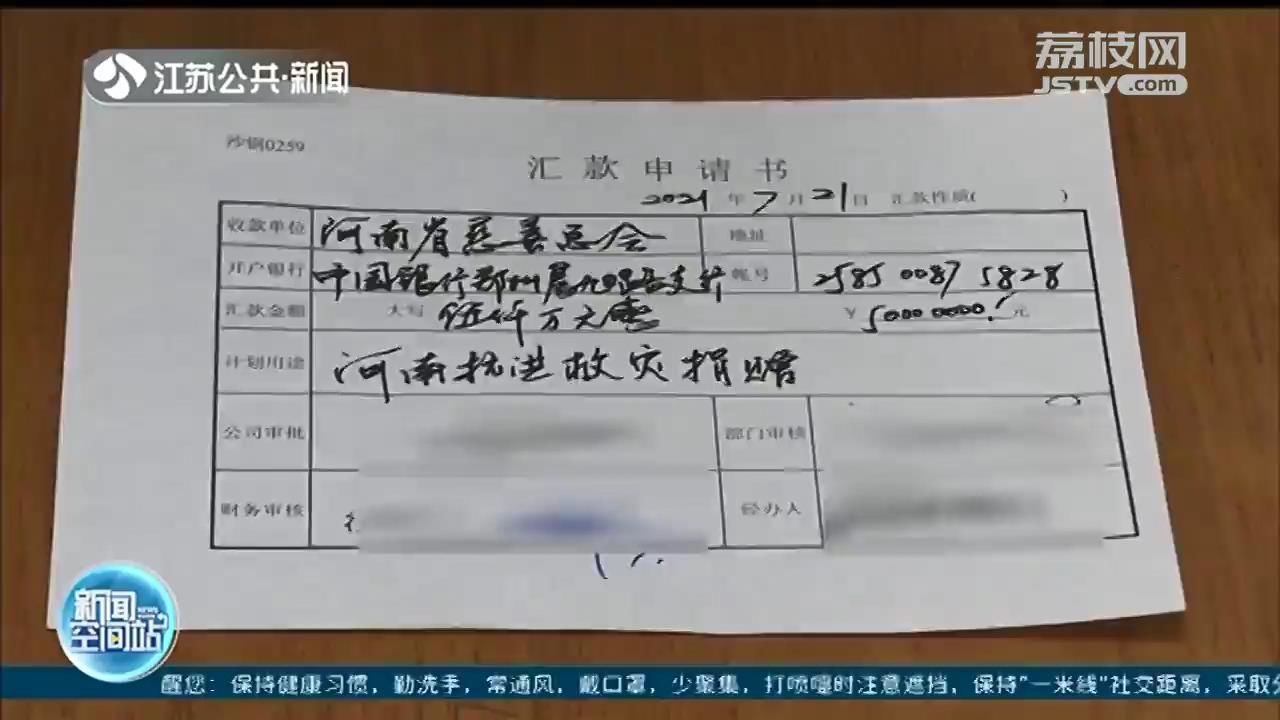 江苏公共·新闻
荔枝网
JSTV.com
沙钢0259
汇款申请书
2021年7月21日 汇款性质( )
收款单位 河南省慈善总会 地址
开户银行 中国银行郑州 支行 帐号 2585 0087 5828
汇款金额 大写 伍仟万元整 ¥ 50000000.- 元
计划用途 河南抗洪救灾捐赠
公司审批 部门审核
财务审核 经办人
新闻
空间站
醒您：保持健康习惯，勤洗手，常通风，戴口罩，少聚集，打喷嚏时注意遮挡，保持“一米线”社交距离，采取分